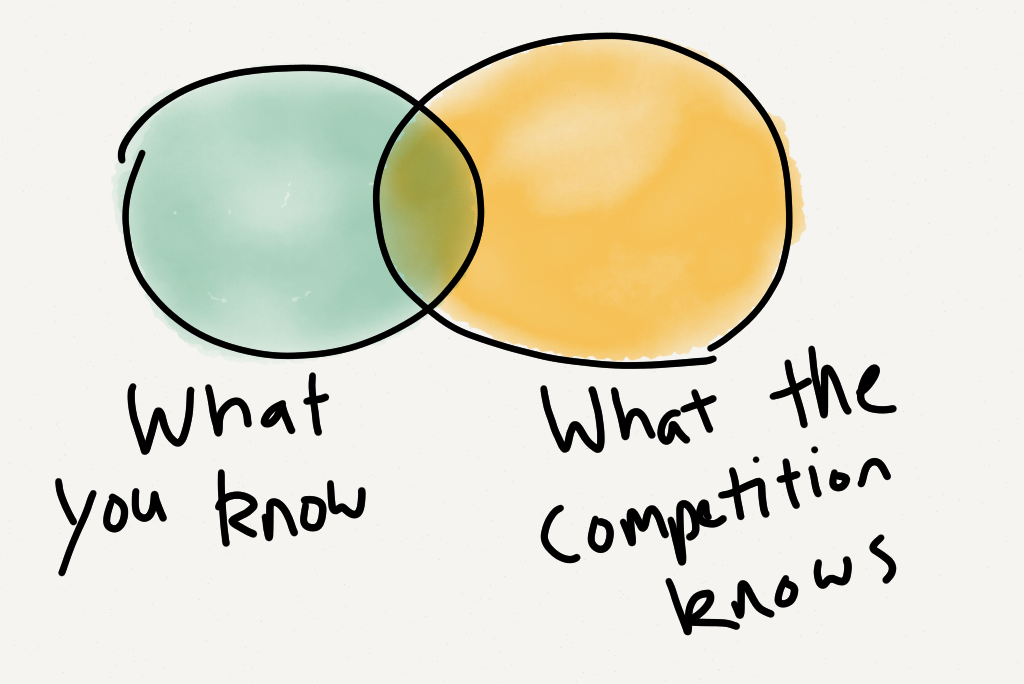 What
you know
What the
Competition
knows